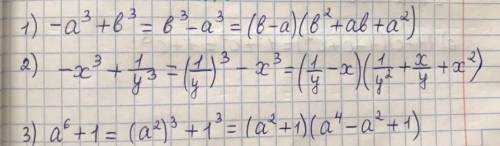 1) -a³ + b³ = b³ - a³ = (b-a)(b² + ab + a²)
2) -x³ + 1/y³ = (1/y)³ - x³ = (1/y - x)(1/y² + x/y + x²)
3) a⁶ + 1 = (a²)³ + 1³ = (a² + 1)(a⁴ - a² + 1)